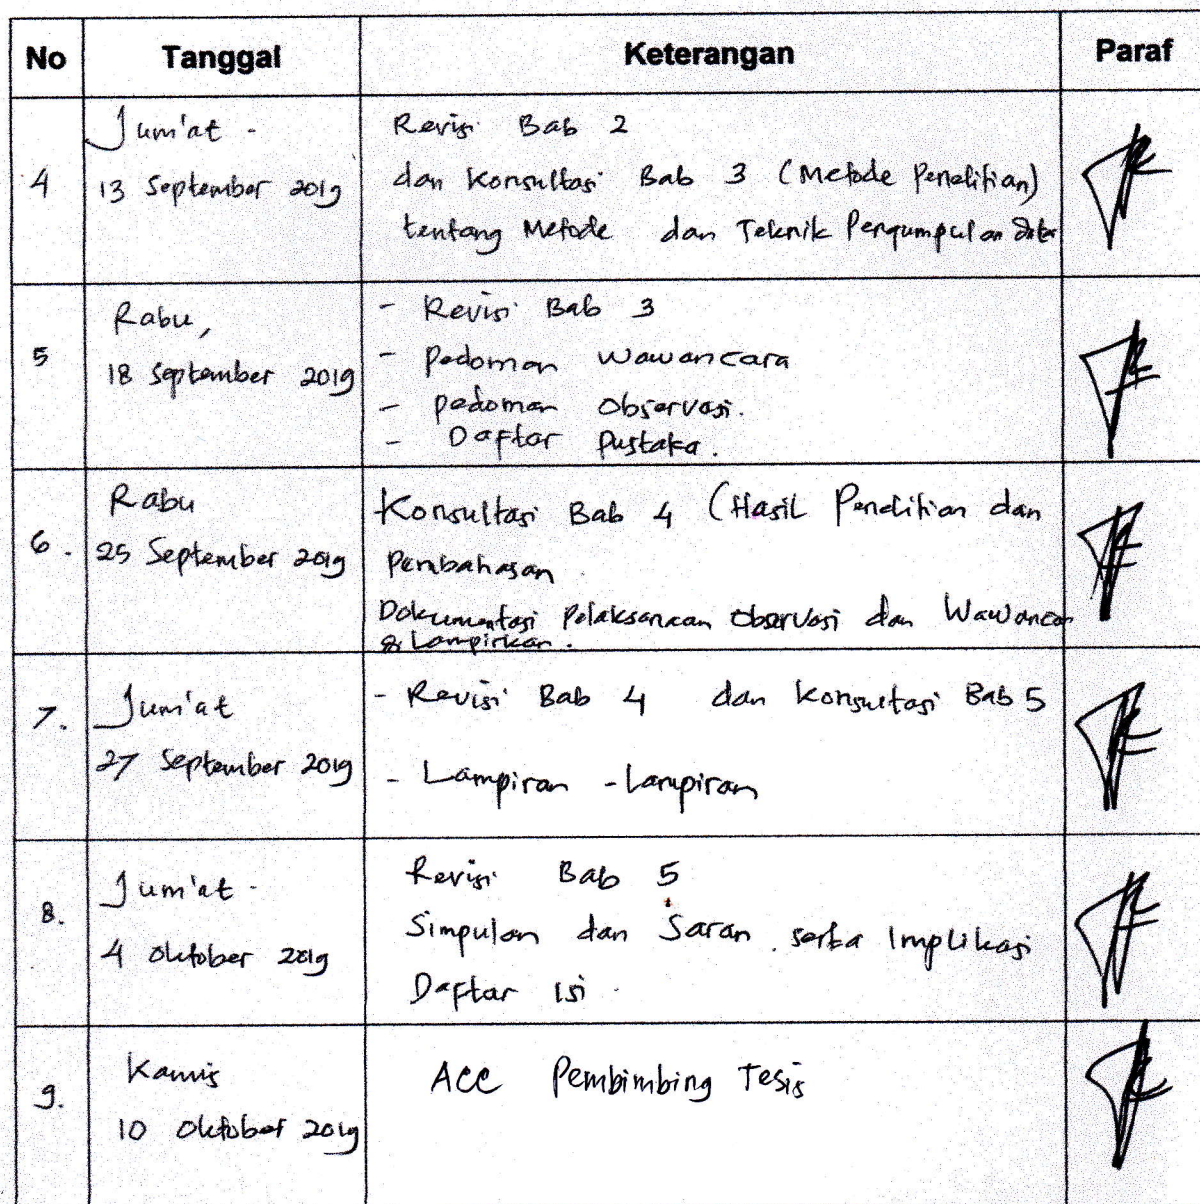 No Tanggal Keterangan Paraf
4
Jum'at -
13 September 2019
Revisi Bab 2
dan Konsultasi Bab 3 (Metode Penelitian)
tentang Metode dan Teknik Pengumpulan data
5
Rabu,
18 September 2019
- Revisi Bab 3
- Pedoman Wawancara
- pedoman Observasi.
- Daftar Pustaka.
6.
Rabu
25 September 2019
Konsultasi Bab 4 (Hasil Penelitian dan
Pembahasan
Dokumentasi Pelaksanaan Observasi dan Wawancar
di Lampirkan.
7.
Jum'at
27 September 2019
- Revisi Bab 4 dan Konsultasi Bab 5
- Lampiran - lampiran
8.
Jum'at -
4 Oktober 2019
Revisi Bab 5
Simpulan dan Saran. serta Implikasi
Daftar Isi.
9.
Kamis
10 Oktober 2019
ACC Pembimbing Tesis